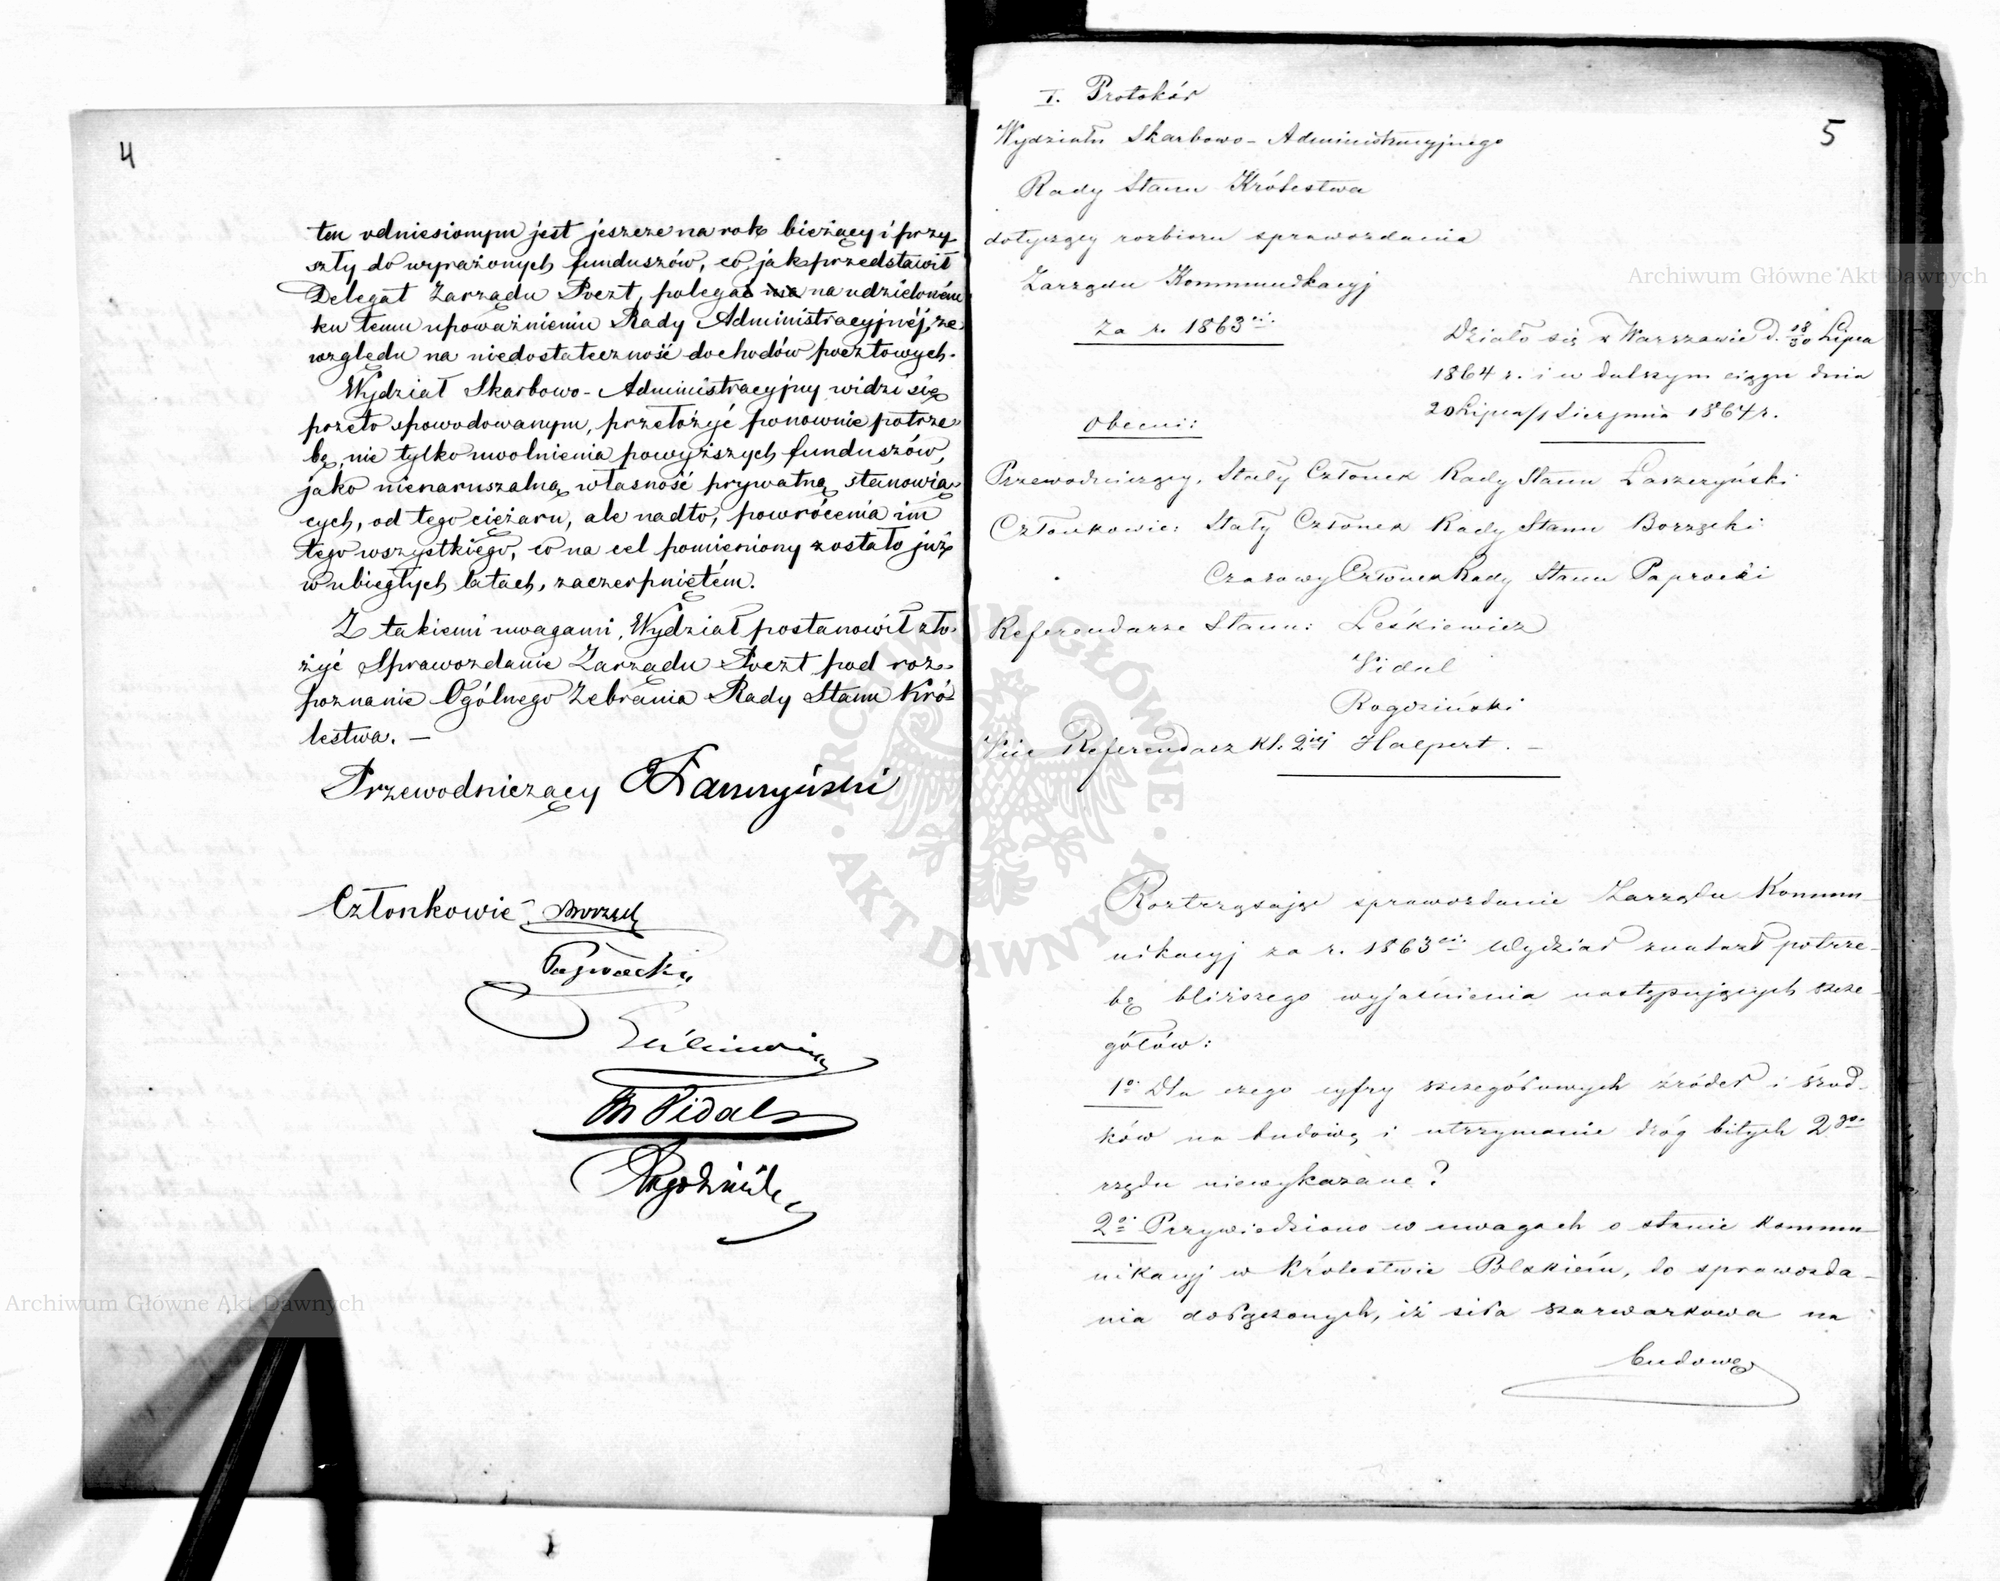 4
ten odniesionym jest jeszcze na rok bieżący i przy
szły do wyrażonych funduszów, co, jak przedstawił
Delegat Zarządu Poczt, polega na udzieloném
ku temu upoważnieniu Rady Administracyjnéj, ze
względu na niedostateczność dochodów pocztowych.
Wydział Skarbowo-Administracyjny widzi się
przeto spowodowanym, przełożyć ponownie potrze-
bę, nie tylko uwolnienia powyższych funduszów,
jako nienaruszalną własność prywatną stanowią-
cych, od tego ciężaru, ale nadto, powrócenia im
tego wszystkiego, co na cel pomieniony zostało już
w ubiegłych latach, zaczerpniętém.
Z takiemi uwagami, Wydział postanowił zło-
żyć Sprawozdanie Zarządu Poczt pod roz-
poznanie Ogólnego Zebrania Rady Stanu Kró-
lestwa. —
Przewodniczący Łaszczyński
Członkowie Borzęcki
Paprocki
Leśkiewicz
Vidal
Rogoziński
5
I. Protokół
Wydziału Skarbowo-Administracyjnego
Rady Stanu Królestwa
dotyczący rozbioru sprawozdania
Zarządu Kommunikacyj
za r. 1863ci.
Działo się w Warszawie d. 18/30 Lipca
1864 r. i w dalszym ciągu dnia
20 Lipca/1 Sierpnia 1864 r.
Obecni:
Przewodniczący, Stały Członek Rady Stanu Łaszczyński
Członkowie: Stały Członek Rady Stanu Borzęcki
Czasowy Członek Rady Stanu Paprocki
Referendarze Stanu: Leśkiewicz
Vidal
Rogoziński
Vice Referendarz kl. 2iéj Halpert. —
Roztrząsając sprawozdanie Zarządu Kommu-
nikacyj za r. 1863ci. Wydział znalazł potrze-
bę bliższego wyjaśnienia następujących szcze-
gółów:
1o. Dla czego cyfry szczegółowych źródeł i środ-
ków na budowę i utrzymanie dróg bitych 2go.
rzędu niewykazane?
2o. Przywiedziono w uwagach o stanie kommu-
nikacyj w Królestwie Polskiém, do sprawozda-
nia dołączonych, iż siła szarwarkowa na
budowę
Archiwum Główne Akt Dawnych
Archiwum Główne Akt Dawnych
ARCHIWUM GŁÓWNE AKT DAWNYCH